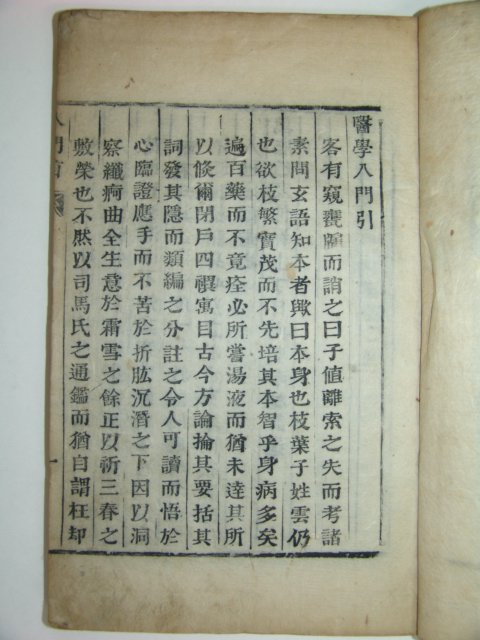 醫學入門引
客有窺甕牖而誚之曰子値離索之失而考諸
素問玄語知本者歟曰本身也枝葉子姓雲仍
也欲枝繁實茂而不先培其本智乎身病多矣
遍百藥而不竟痊必所嘗湯液而猶未達其所
以倐爾閉戶四禩寓目古今方論掄其要括其
詞發其隱而類編之分註之令人可讀而悟於
心臨證應手而不苦於折肱沉潛之下因以洞
察纖痾曲全生意於霜雪之餘正以祈三春之
敷榮也不然以司馬氏之通鑑而猶自謂枉却
入門首